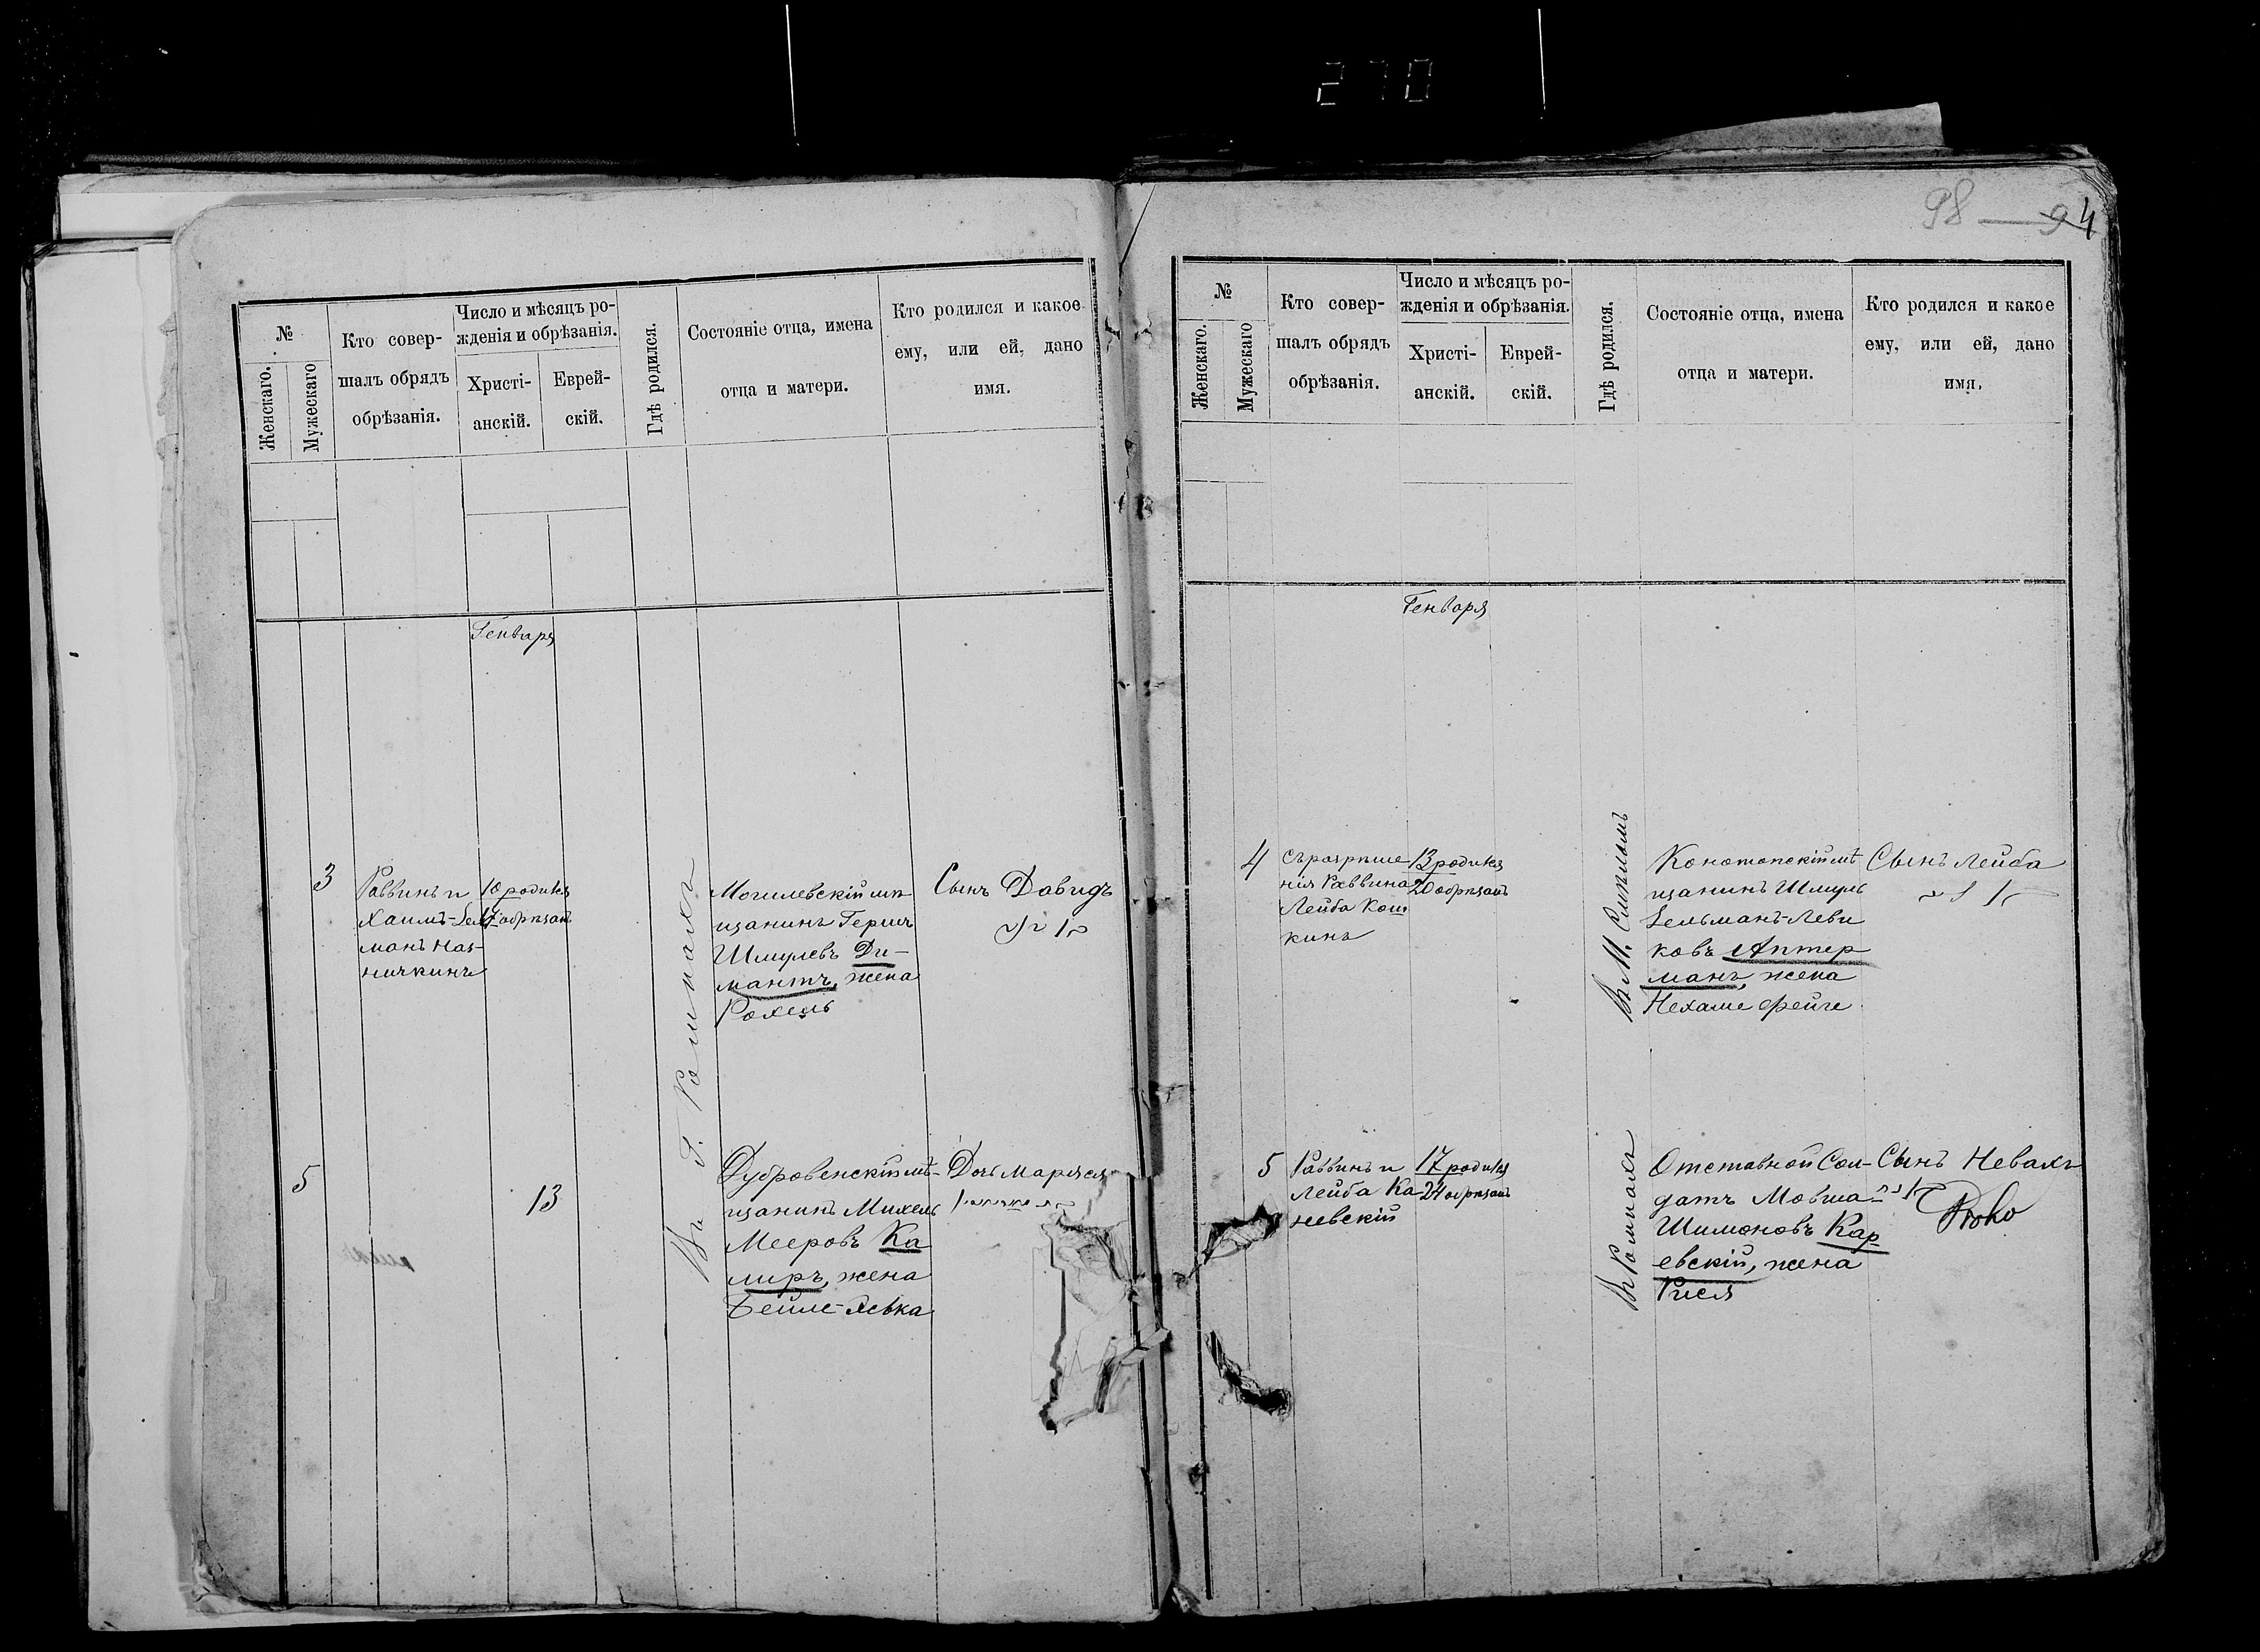 270
№
Женскаго.
Мужескаго
Кто совер-
шалъ обрядъ
обрѣзанія.
Число и мѣсяцъ ро-
жденія и обрѣзанія.
Христі-
анскій.
Еврей-
скій.
Гдѣ родился.
Состояніе отца, имена
отца и матери.
Кто родился и какое
ему, или ей, дано
имя.
Генваря
3
Раввинъ и
Хаимъ-Зель
манъ
10 родился
17 обрѣзанъ
Въ г. Ромнахъ
Могилевскій мѣ-
щанинъ Гершъ
Шмулевъ Ди-
мантъ, жена
Рохель
Сынъ Давидъ
5
13
Дубровенскій мѣ-
щанинъ Михель
Мееровъ Ка
миръ, жена
Бейле-
Дочь
98
4
№
Женскаго.
Мужескаго
Кто совер-
шалъ обрядъ
обрѣзанія.
Число и мѣсяцъ ро-
жденія и обрѣзанія.
Христі-
анскій.
Еврей-
скій.
Гдѣ родился.
Состояніе отца, имена
отца и матери.
Кто родился и какое
ему, или ей, дано
имя.
Генваря
4
Съ разрѣше-
нія Раввина
Лейба Кош
кинъ
13 родился
20 обрѣзанъ
Въ м. Смѣломъ
Конотопскій мѣ
щанинъ Шмуль
Зельманъ-Леви
ковъ Аптер
манъ, жена
Нехаме Фейге
Сынъ Лейба
5
Раввинъ и
Лейба Ка
невскій
17 родился
24 обрѣзанъ
Въ Ромнахъ
Отставной Сол-
датъ Мовша
Шимоновъ Кар
евскій, жена
Рися
Сынъ Невахъ